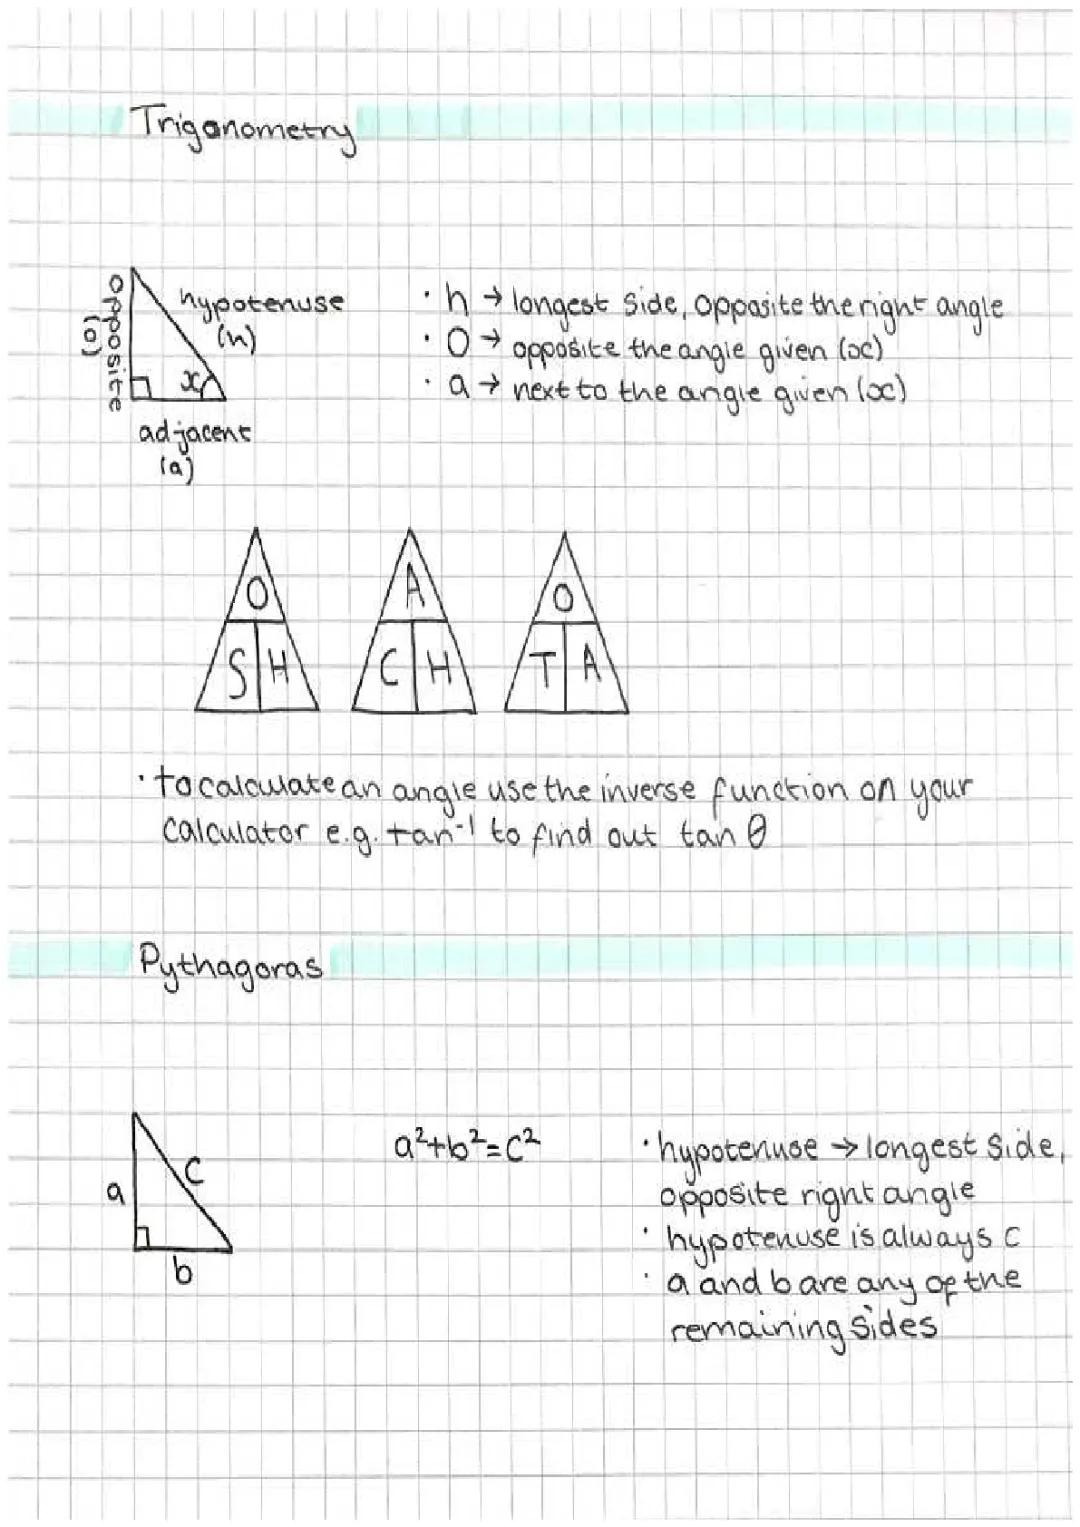 Trigonometry
opposite
(o)
hypotenuse
(h)
x
adjacent
(a)
· h → longest side, opposite the right angle
· O → opposite the angle given (x)
· a → next to the angle given (x)
O
S H
A
C H
O
T A
· to calculate an angle use the inverse function on your
calculator e.g. tan⁻¹ to find out tan θ
Pythagoras
a
c
b
a²+b²=c²
· hypotenuse → longest side,
opposite right angle
· hypotenuse is always c
· a and b are any of the
remaining sides